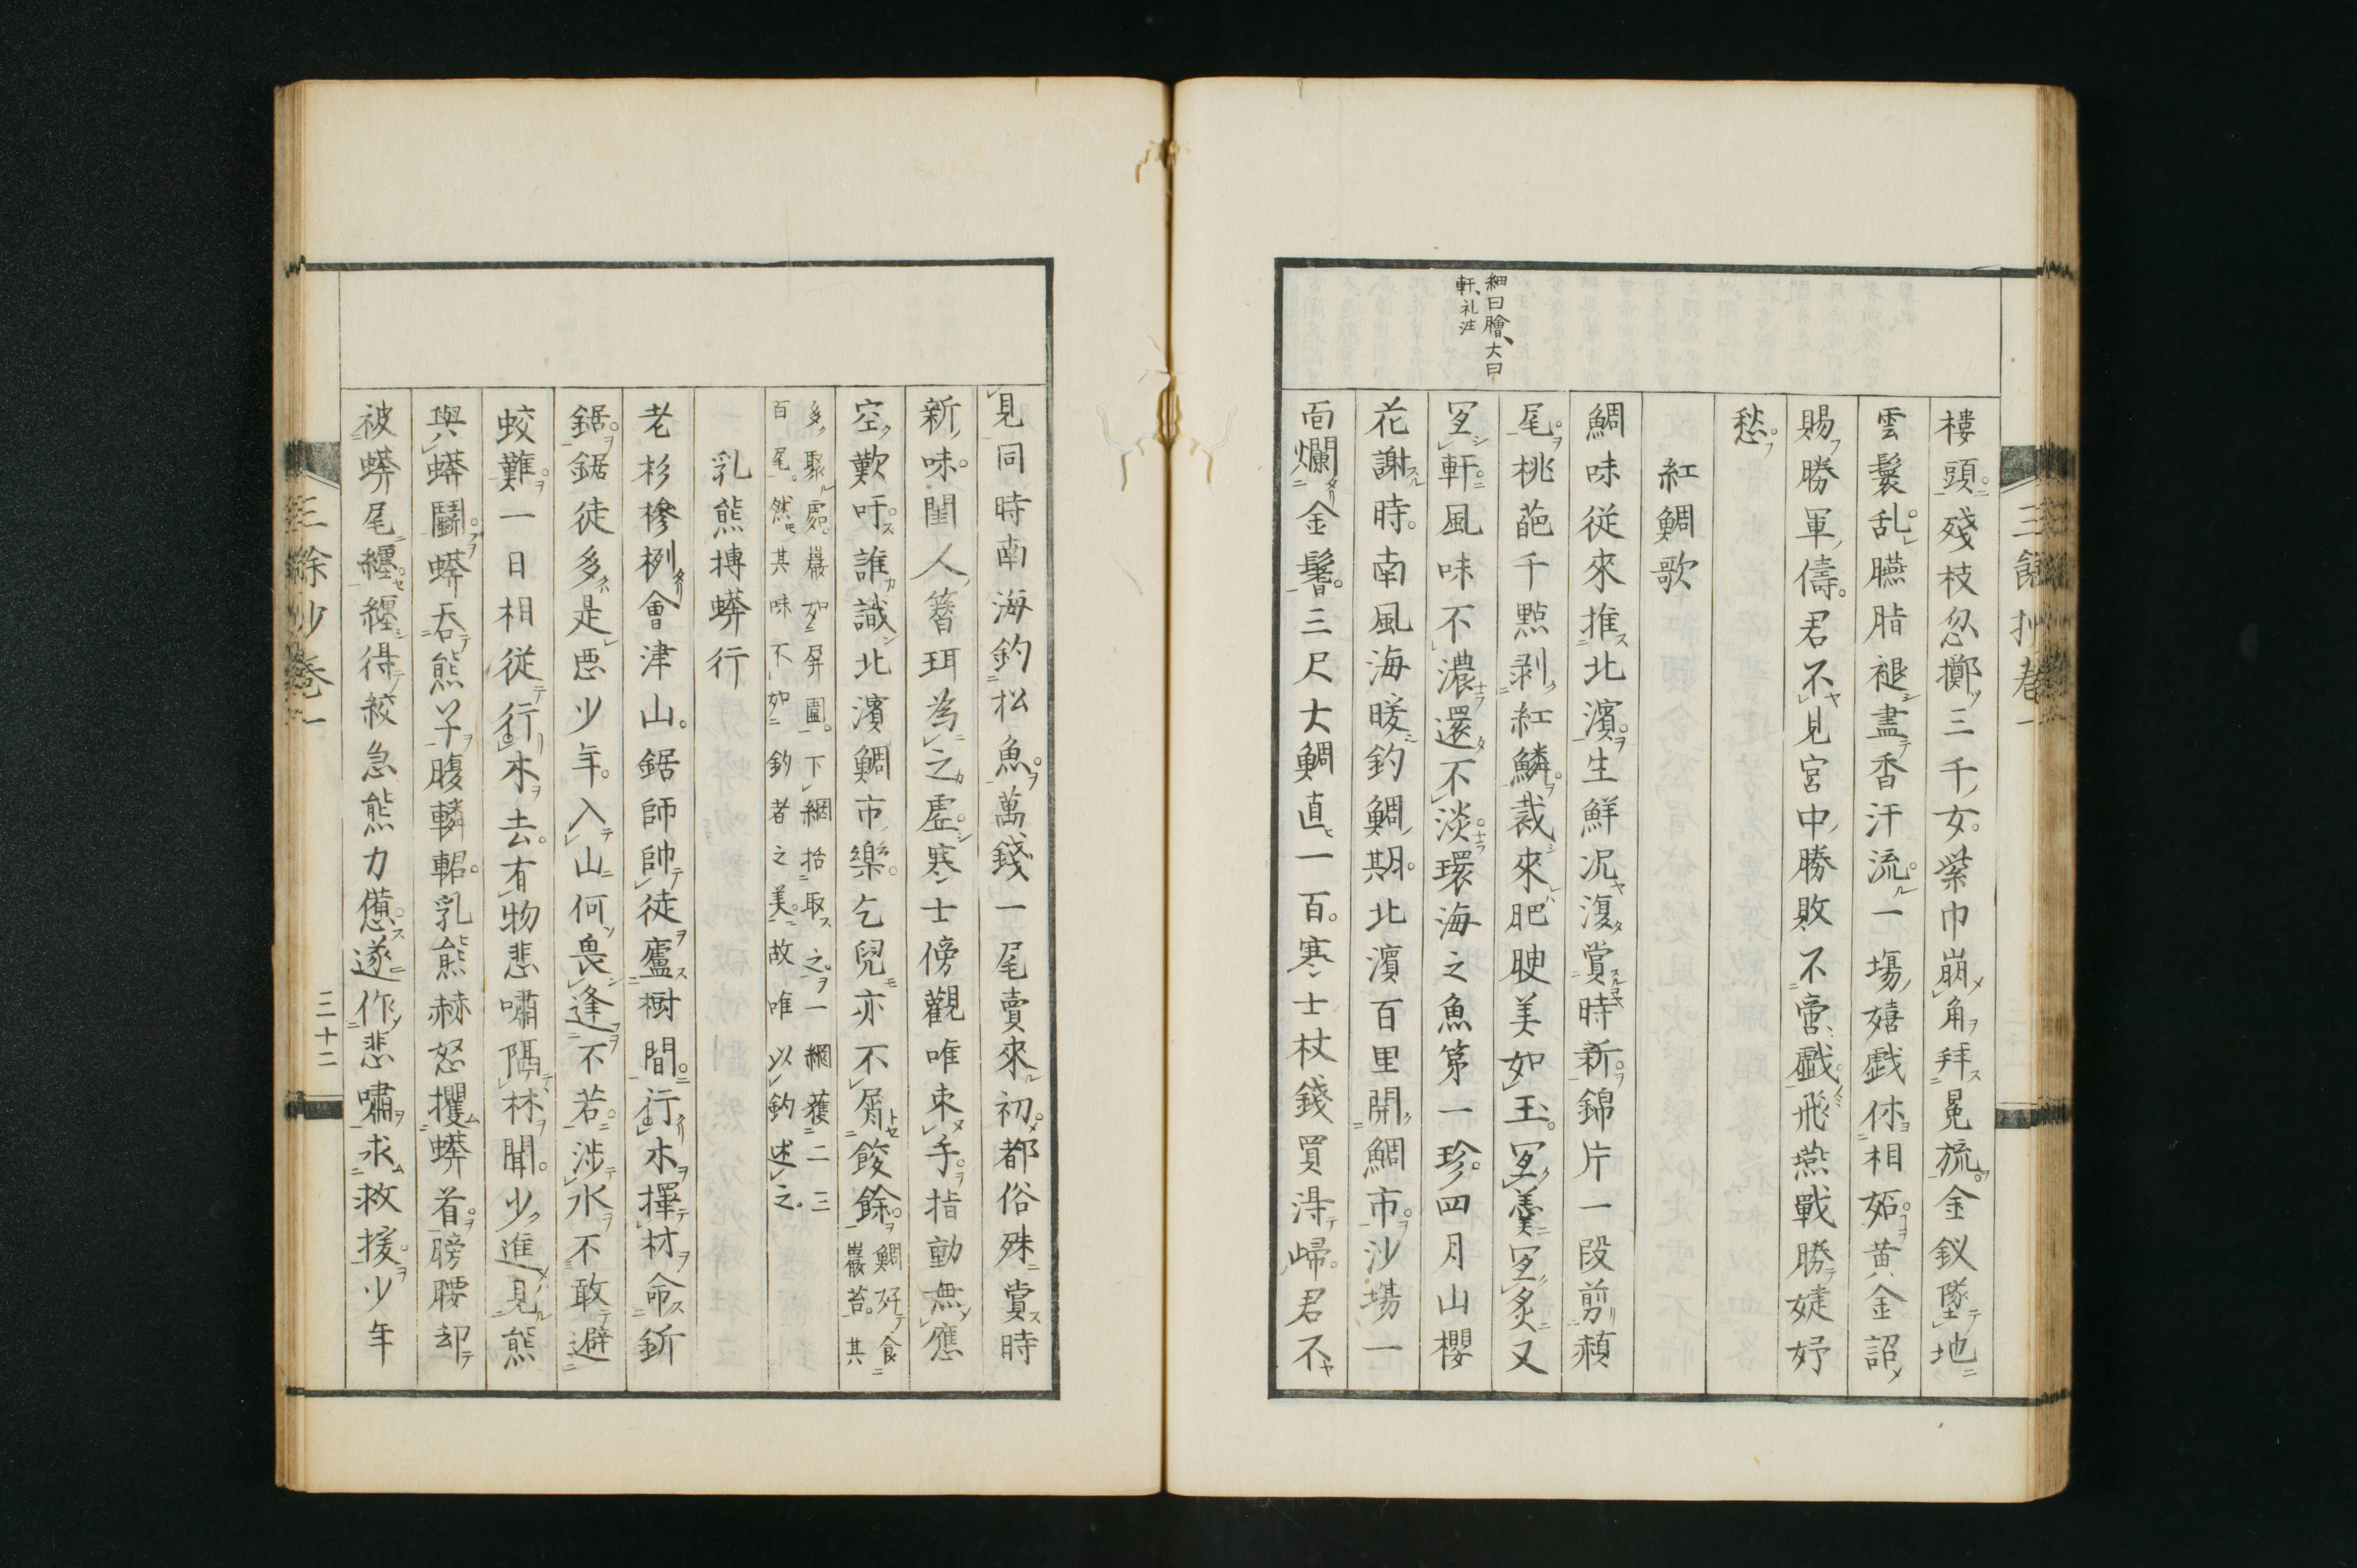 三餘抄卷一
細曰膾、大曰
軒、礼注
樓頭殘枝忽擲三千女紫巾崩角拜冕旒金釵墜地
雲鬟乱臙脂褪盡香汗流一塲嬉戯休相妬黄金詔
賜勝軍儔君不見宮中勝敗不啻戯飛燕戰勝婕妤
愁
紅鯛歌
鯛味從來推北濱生鮮况復賞時新錦片一段剪頳
尾桃葩千點剥紅鱗裁來肥腴美如玉冝羹冝炙又
冝軒風味不濃還不淡環海之魚第一珍四月山櫻
花謝時南風海暖釣鯛期北濱百里開鯛市沙塲一
面爛金鬐三尺大鯛直一百寒士杖錢買得歸君不
見同時南海釣松魚萬錢一尾賣來初都俗殊賞時
新味閨人簪珥為之虛寒士傍觀唯束手指動無應
空歎吁誰識北濱鯛市樂乞兒亦不屑餕餘
鯛好食巖苔其
多聚處巖如屏圍下網括取之一網獲二三
百尾然其味不如釣者之美故唯以釣述之
乳熊搏蟒行
老杉槮梸會津山鋸師帥徒廬樹間行木擇材命斨
鋸鋸徒多是惡少年入山何畏逢不若涉水不敢避
蛟難一日相從行木去有物悲嘯隔林聞少進見熊
與蟒鬬蟒吞熊子腹轔輑乳熊赫怒攫蟒首膀腰却
被蟒尾纏纏得絞急熊力憊遂作悲嘯求救援少年
三餘抄卷一
三十二